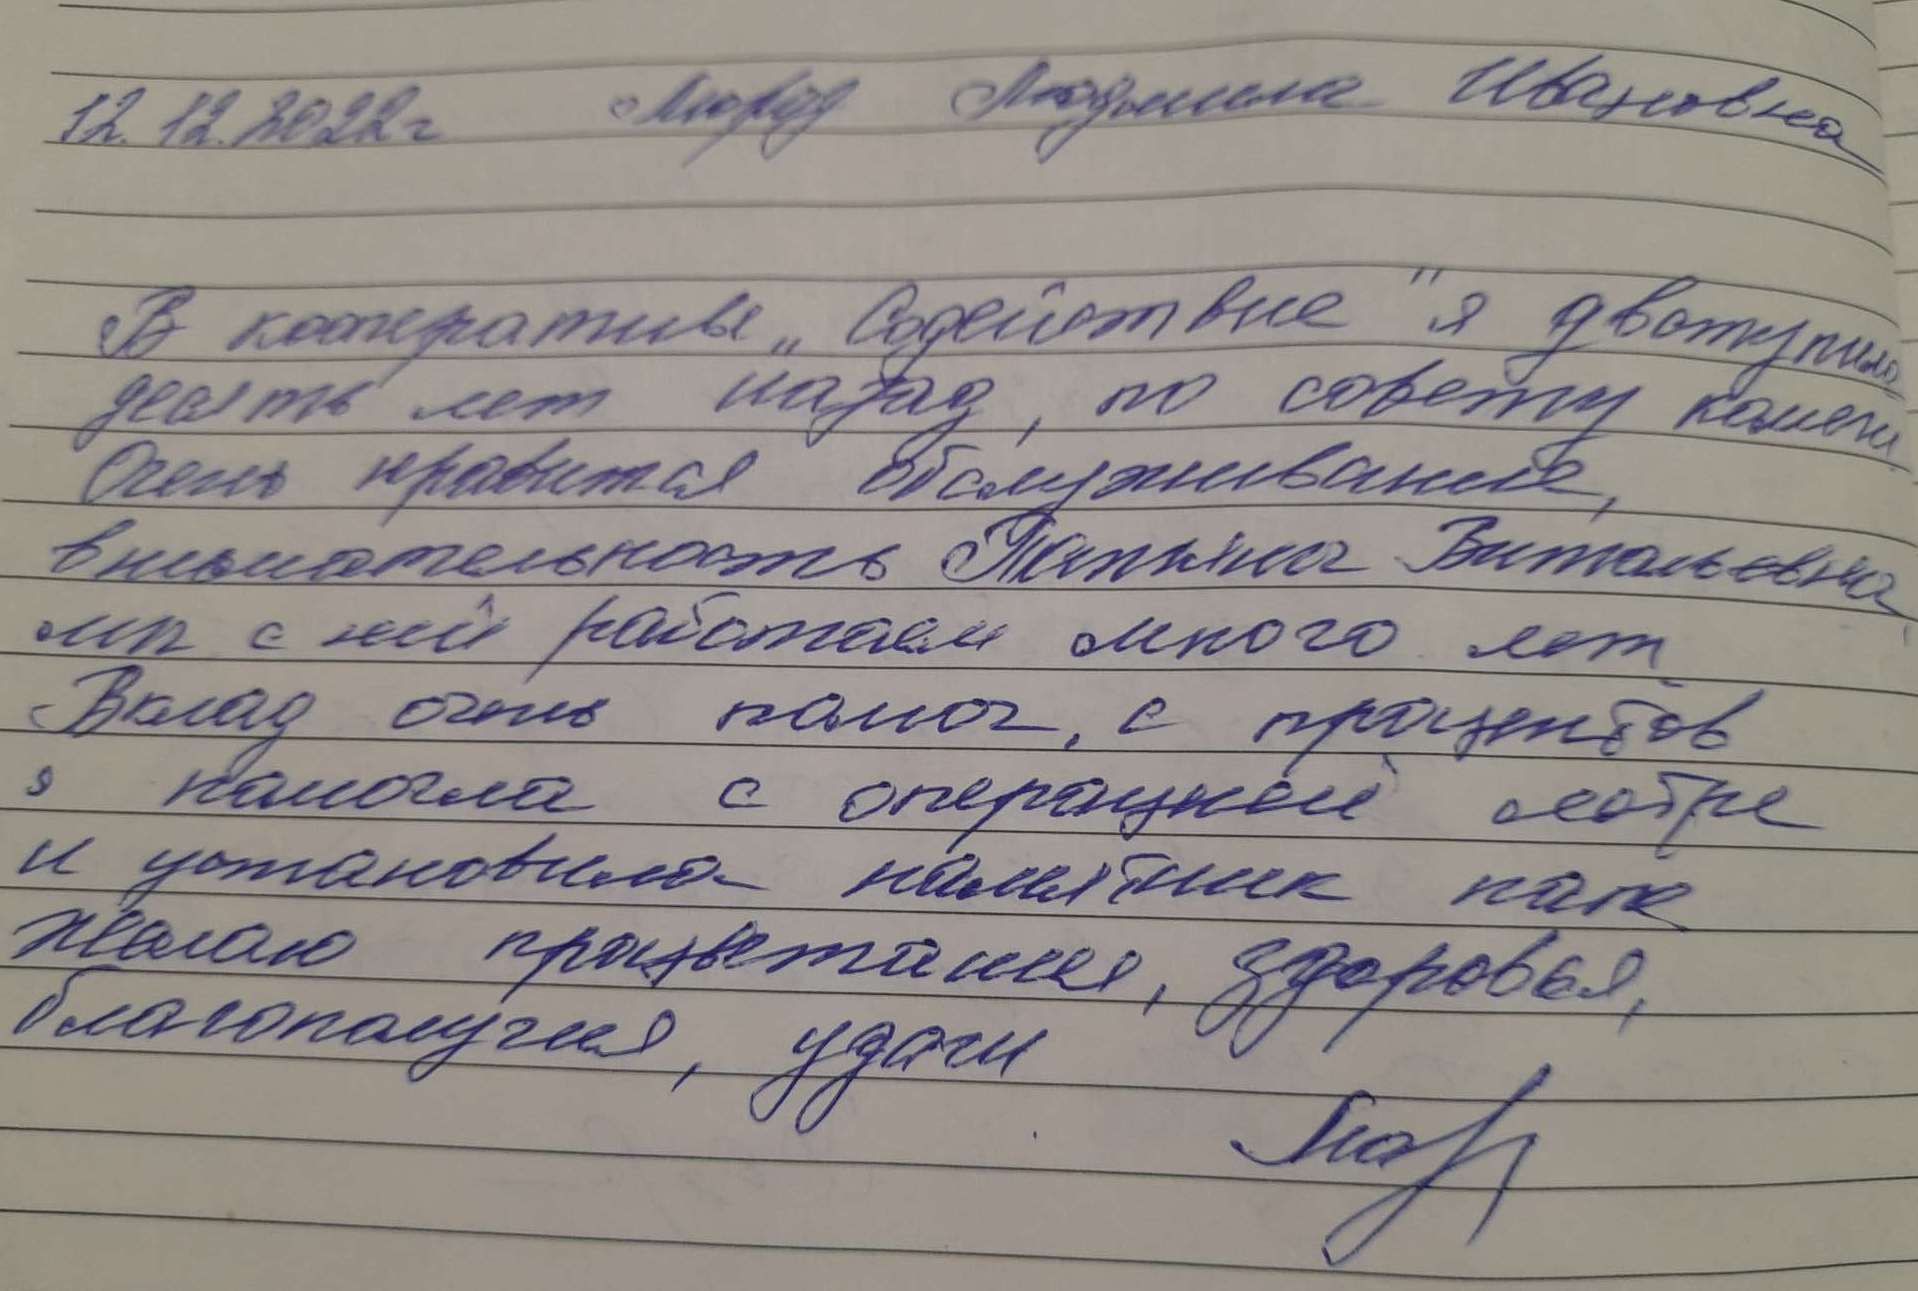 12.12.2022г Людмила Ивановна
В кооперативе „Содействие" я
десять лет назад, по совету
Очень нравится обслуживание,
внимательность Татьяна Витальевна
мы с ней работаем много лет
Вклад очень помог, с процентов
я помогла с операцией
и установила памятник папе
желаю процветания, здоровья,
благополучия, удачи